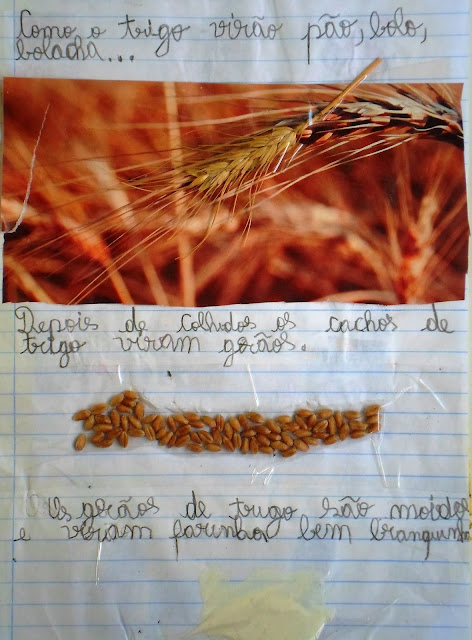 Como o trigo virão pão, bolo,
bolacha...
Depois de colhidos os cachos de
trigo viram gorãos.
Os gorãos de trigo são moidos
e viram farinha bem branquinha